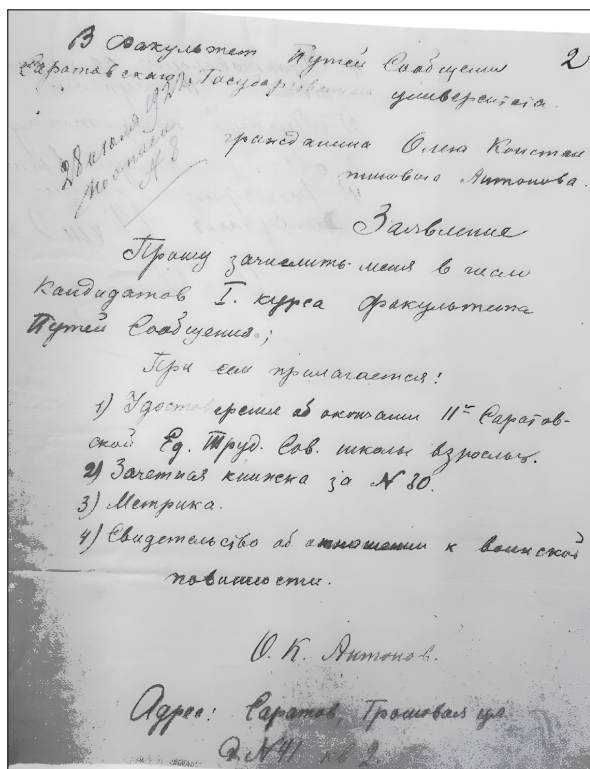 2
В Факультет Путей Сообщения
Саратовского Государственного
университета.
28 июля 192
№ 8
гражданина Олега Констан
тиновича Антонова.
Заявление
Прошу зачислить меня в число
Кандидатов I. курса факультета
Путей Сообщения;
При сем прилагается:
1) Удостоверение об окончании 11й Саратов-
ской Ед. Труд. Сов. школы взрослых.
2) Зачетная книжка за № 80.
3) Метрика.
4) Свидетельство об отношении к воинской
повинности.
О. К. Антонов.
Адрес: Саратов, Грошовая ул
Д № 41 кв 2